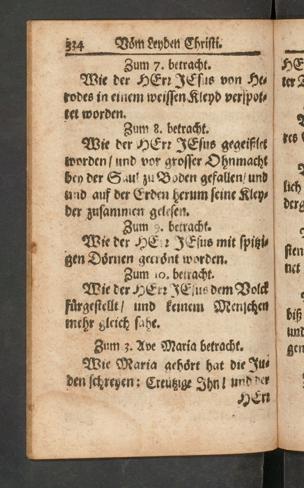 334 Vom Leyden Christi.
Zum 7. betracht.
Wie der HErr JEsus von He-
rodes in einem weissen Kleyd verspot-
tet worden.
Zum 8. betracht.
Wie der HErr JEsus gegeißlet
worden/ und vor grosser Ohnmacht
bey der Saul zu Boden gefallen/ und
und auf der Erden herum seine Kley-
der zusammen gelesen.
Zum 9. betracht.
Wie der HErr JEsus mit spitzi-
gen Dörnen gecrönt worden.
Zum 10. betracht.
Wie der HErr JEsus dem Volck
fürgestellt/ und keinem Menschen
mehr gleich sahe.
Zum 3. Ave Maria betracht.
Wie Maria gehört hat die Ju-
den schreyen: Creutzige Ihn! und der
HErr